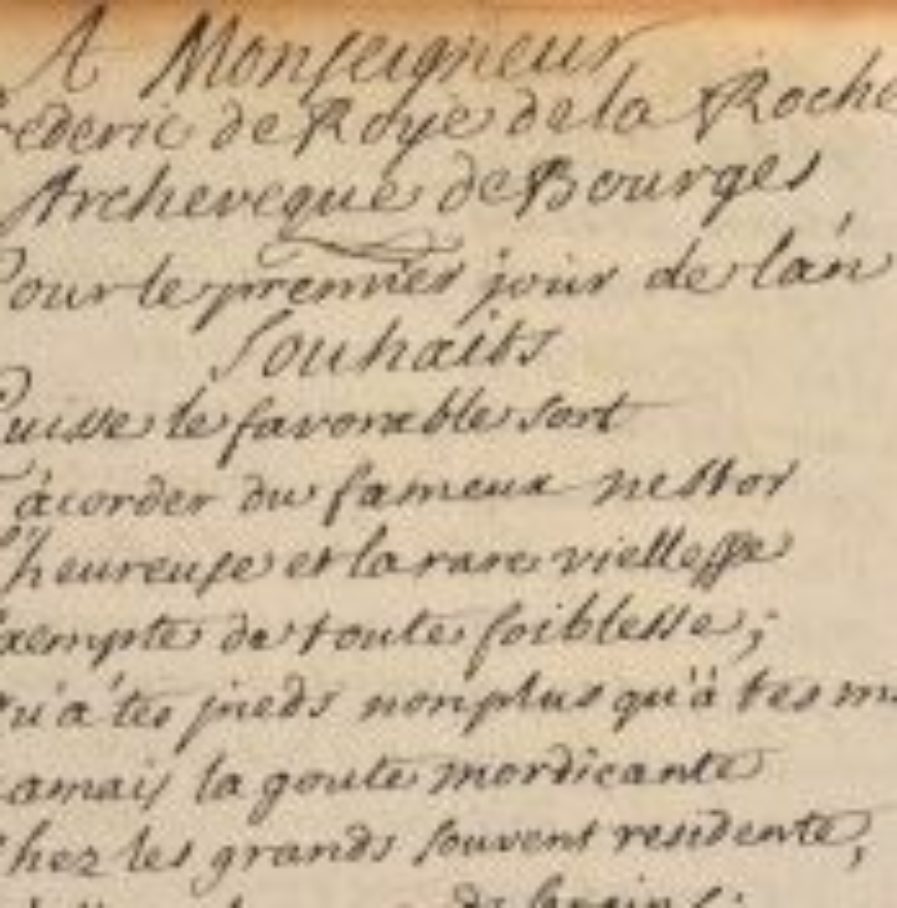 A Monseigneur
rederic de Roye de la Roche
Archeveque de Bourges
Pour le premier jour de l'an
Souhaits
Puisse le favorable sort
T'acorder du fameux nestor
L'heureuse et la rare viellesse
Exempte de toute foiblesse;
Qu'a tes pieds non plus qu'à tes m
Jamais la goute mordicante
Chez les grands souvent residente,